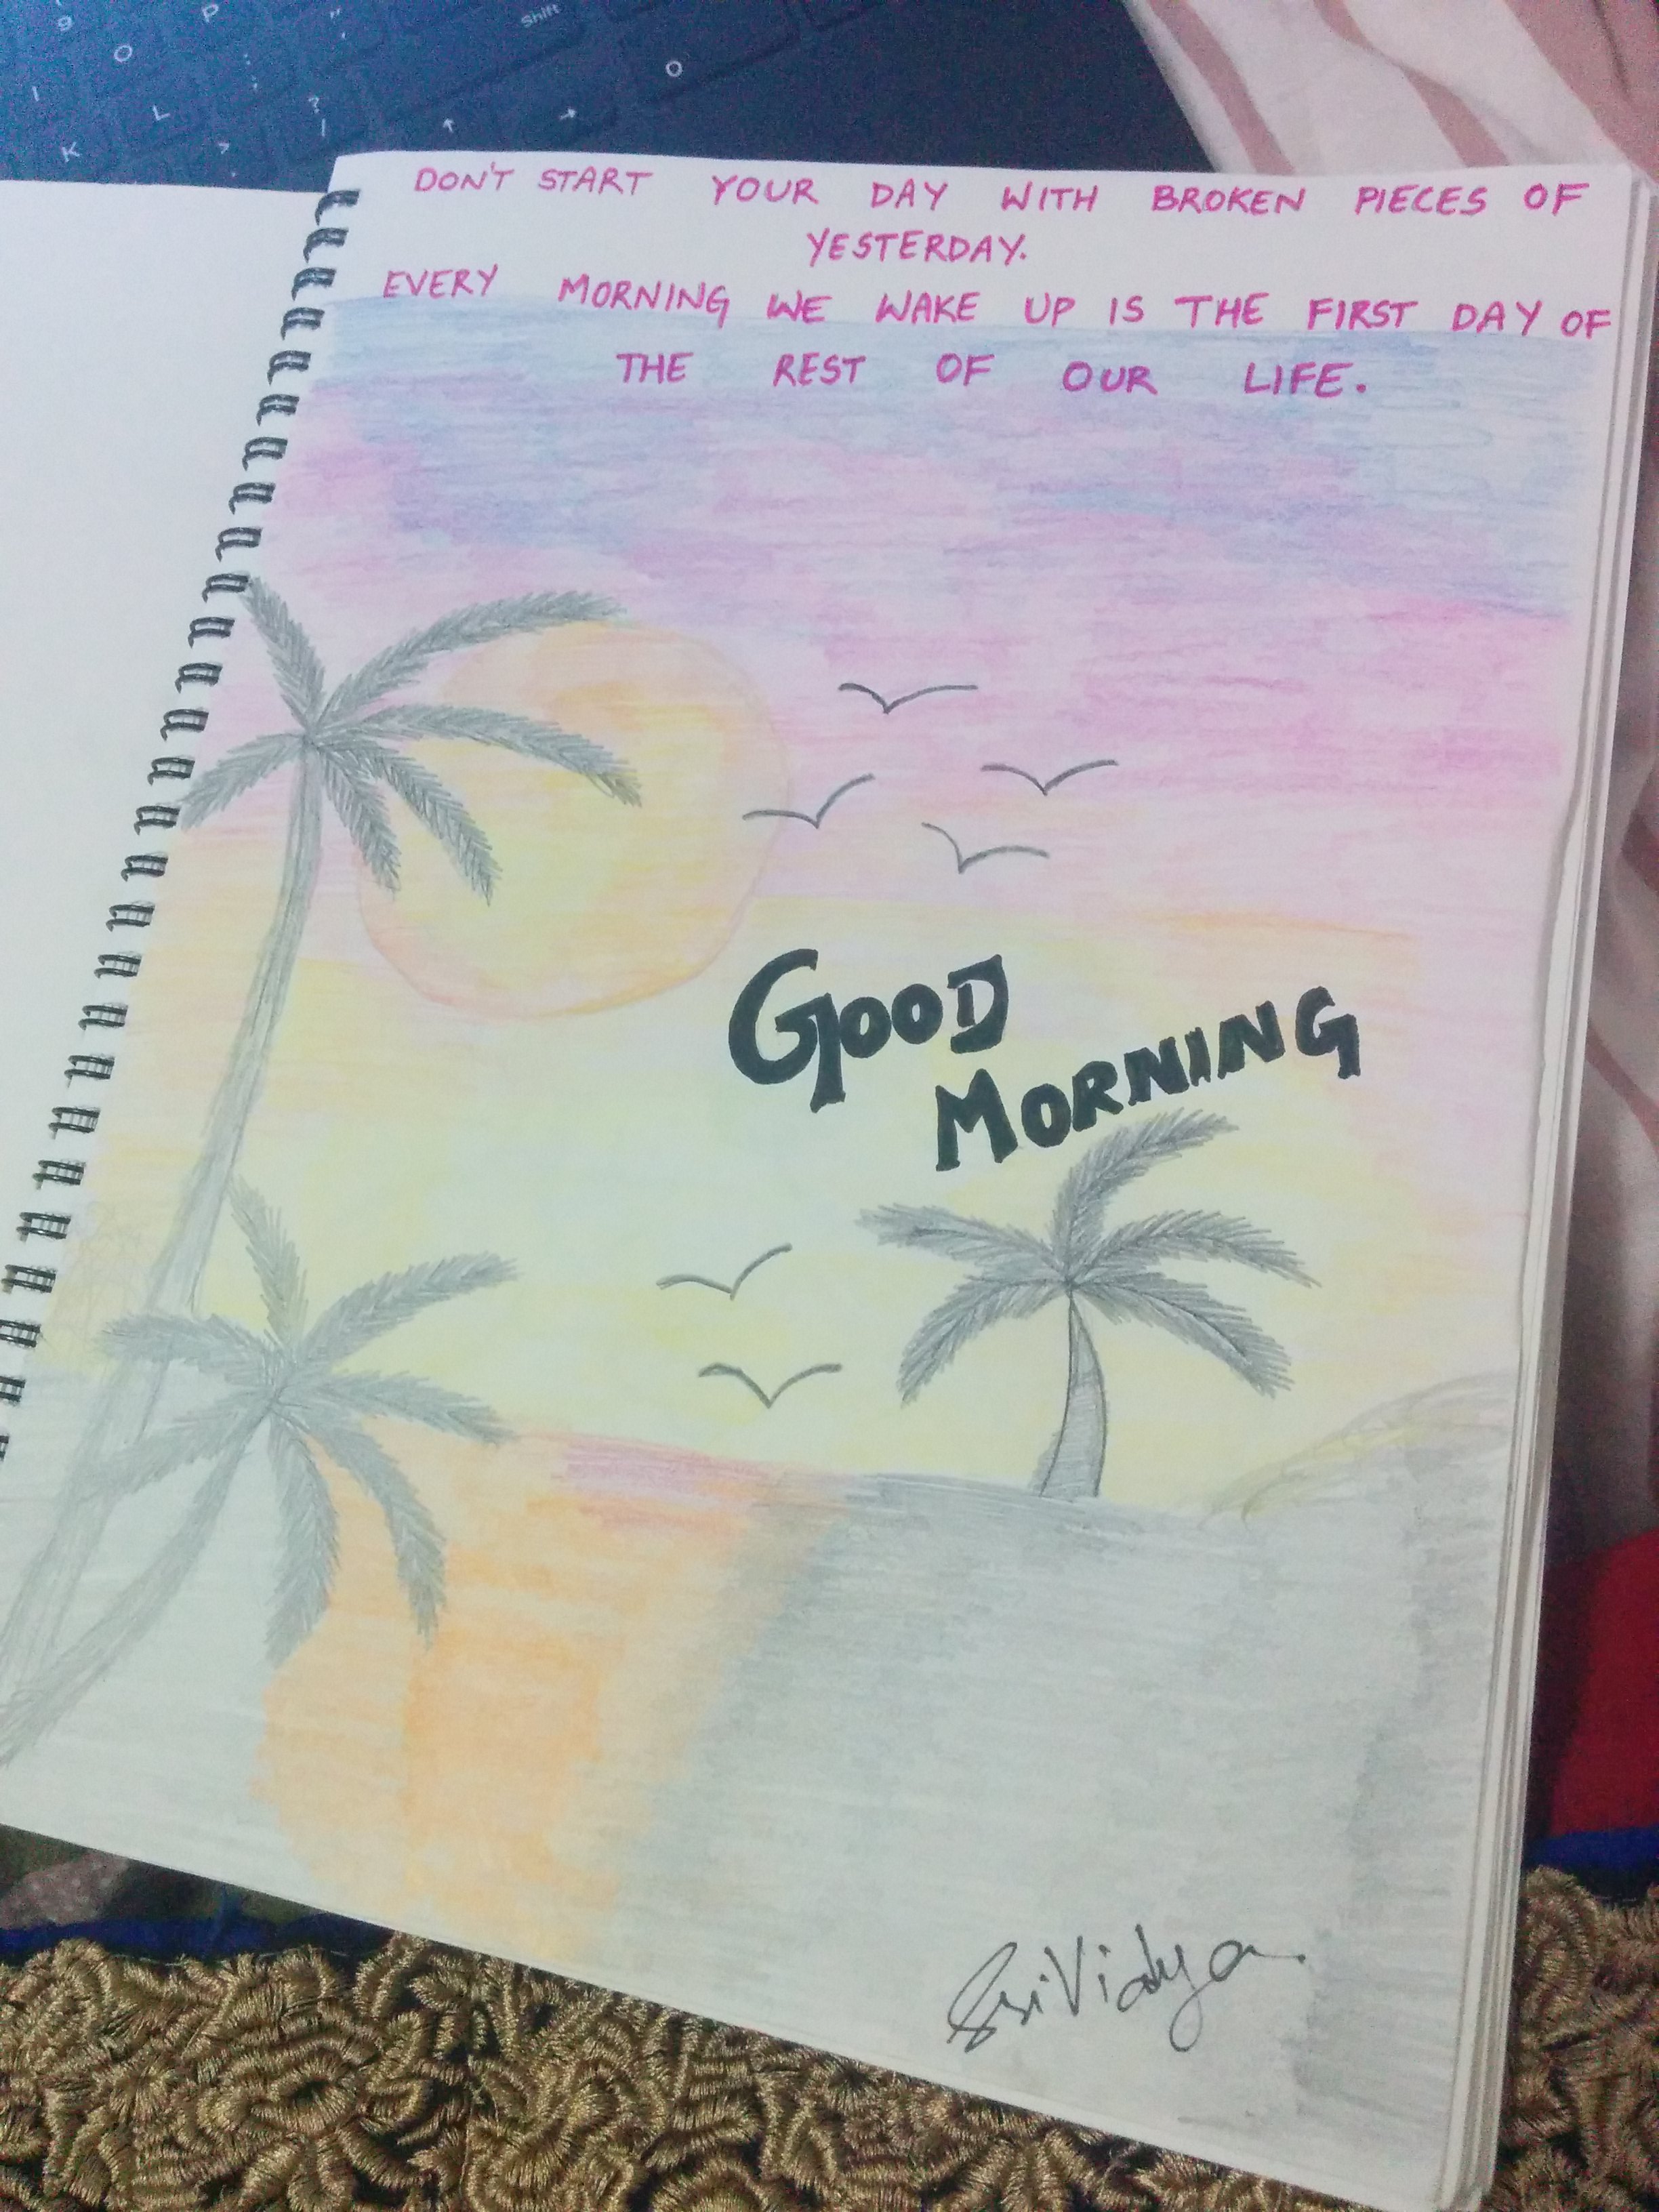 Shift
DON'T START YOUR DAY WITH BROKEN PIECES OF
YESTERDAY.
EVERY MORNING WE WAKE UP IS THE FIRST DAY OF
THE REST OF OUR LIFE.
GOOD
MORNING
SriVidya.